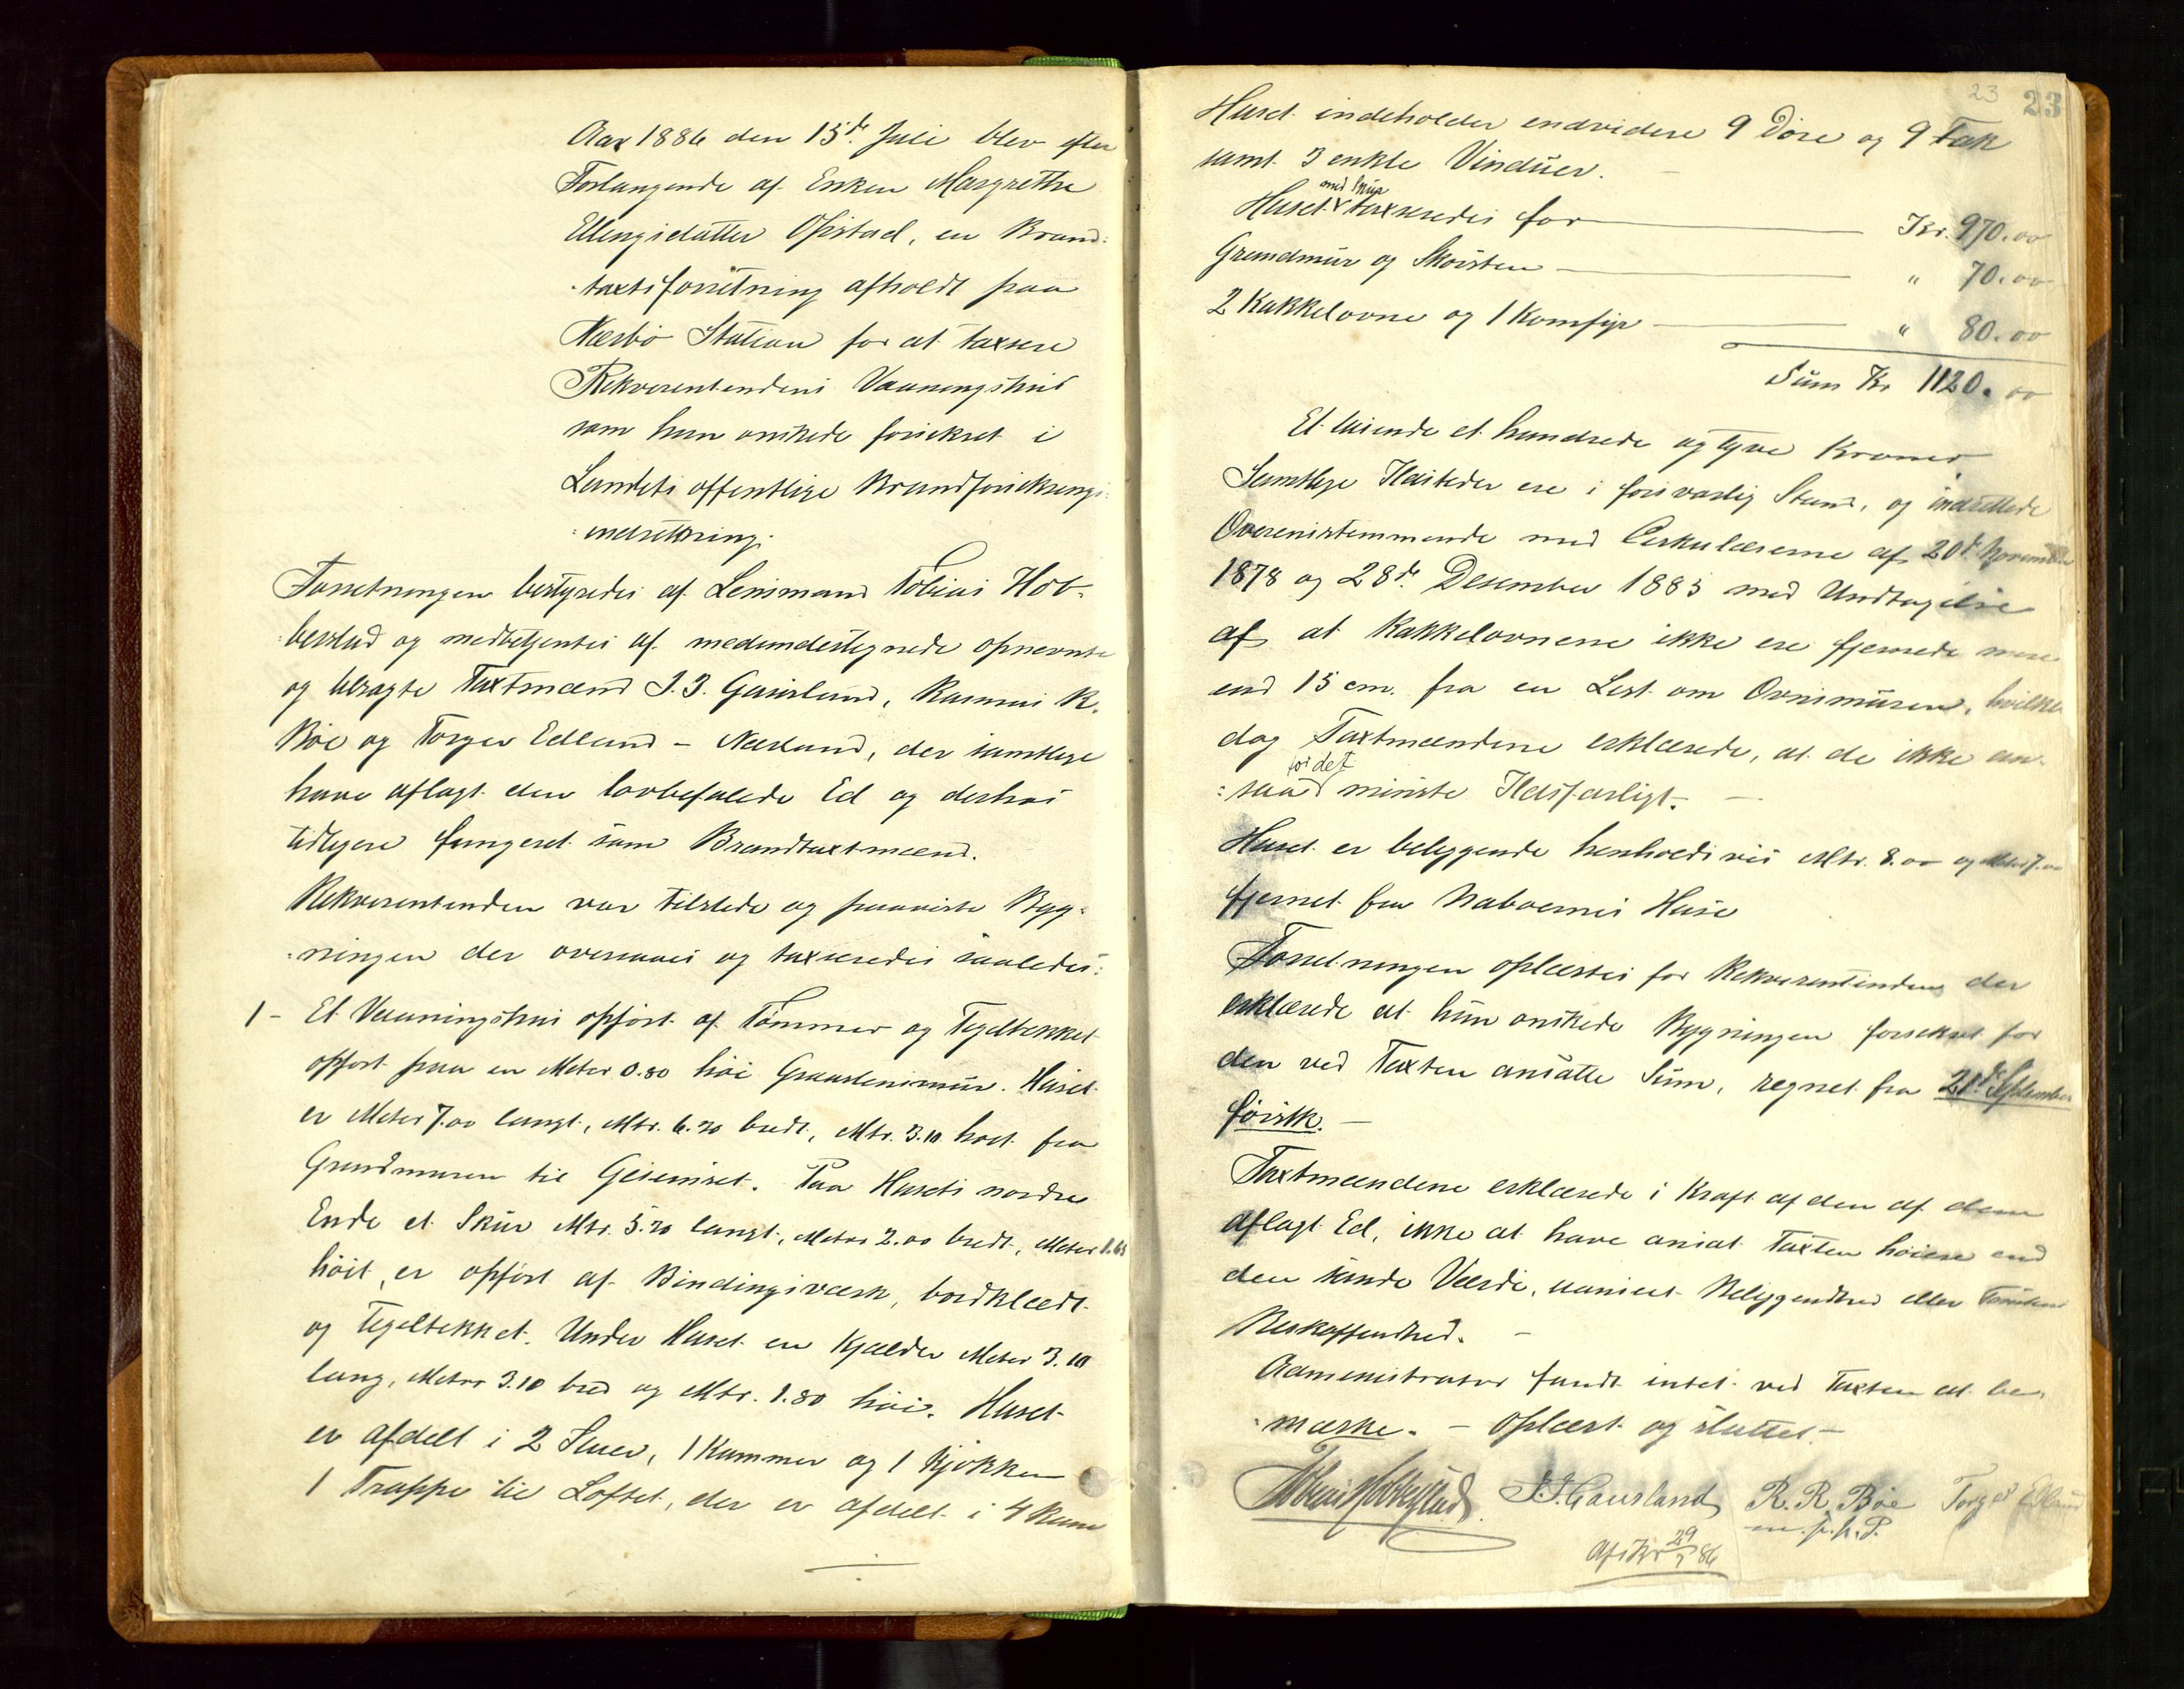 Aar 1886 den 15de Juli blev efter
Forlangende af Enken Margrethe
Ellingsdatter Opstad, en Brand-
taxtsforretning afholdt paa
Nærbø Station for at taxere
Rekverentendens Vaaningshus
som hun ønskede forsikret i
Landets offentlige Brandforsikrings-
indretning.
Forretningen bestyredes af Lensmand Tobias Hob-
berstad og medbetjentes af medundertegnede opnevnte
og beragte Taxtmænd J. J. Gausland, Rasmus R.
Bøe og Torger Edland - Nærland, der samtlige
have aflagt den lovbefalede Ed og derhos
tidligere fungeret som Brandtaxtmænd.
Rekverentenden var tilstede og paaviste Byg-
ningen der oversaaes og taxeredes saaledes:
1- Et Vaaningshus opført af Tømmer og Tegltækket
opført paa en Meter 0.80 høi Graastensmur. Huset
er Meter 7.00 langt, Mtr. 6.20 bredt, Mtr. 3.10 høit fra
Grundmuren til Gesemset. Paa Husets nordre
Ende et Skur Mtr. 5.20 langt, Meter 2.00 bredt, Meter 1.65
høit, er opført af Bindingsværk, bordklædt
og Tegltekket. Under Huset en Kjælder Meter 3.10
lang, Meter 3.10 bred og Mtr. 1.80 høi. Huset
er afdelt i 2 Stuer, 1 Kammer og 1 Kjøkken
1 Trappe til Loftet, der er afdelt i 4 Rum
23 23
Huset indeholder endvidere 9 Døre og 9 Fak
samt 3 enkle Vinduer.
Huset med Skur taxeredes for Kr. 970.00
Grundmur og Skorsten " 70.00
2 Kakkelovne og 1 Komfyr " 80.00
Sum Kr 1120.00
Et tusende et hundrede og tyve Kroner
Samtlige Ildsteder ere i forsvarlig Stand, og indrettede
Overenstemmende med Cirkulærerne af 20de November
1878 og 28de Desember 1885 med Undtagelse
af at Kakkelovnene ikke ere fjernede mere
end 15 cm. fra en List om Ovnsmuren, hvilket
dog Taxtmændene erklærede, at de ikke an-
saa for det minste Ildsfarligt. -
Huset er beliggende henholdsvis Mtr. 8.00 og Meter 7.00
fjernet fra Naboernes Huse
Forretningen oplæstes for Rekverentenden der
erklærede at hun ønskede Bygningen forsikret for
den ved Taxten ansatte Sum, regnet fra 21de September
førstk. -
Taxtmændene erklærede i Kraft af den af dem
aflagt Ed, ikke at have ansat Taxten høiere end
den sande Værdi, uanseet Beliggendhed eller Tomtens
Beskaffendhed. -
Administrator fandt intet ved Taxten at be-
mærke. - Oplæst og sluttet. -
Tobias Hobberstad J. J. Gausland R. R. Bøe Torger Edland
m. p. h. P.